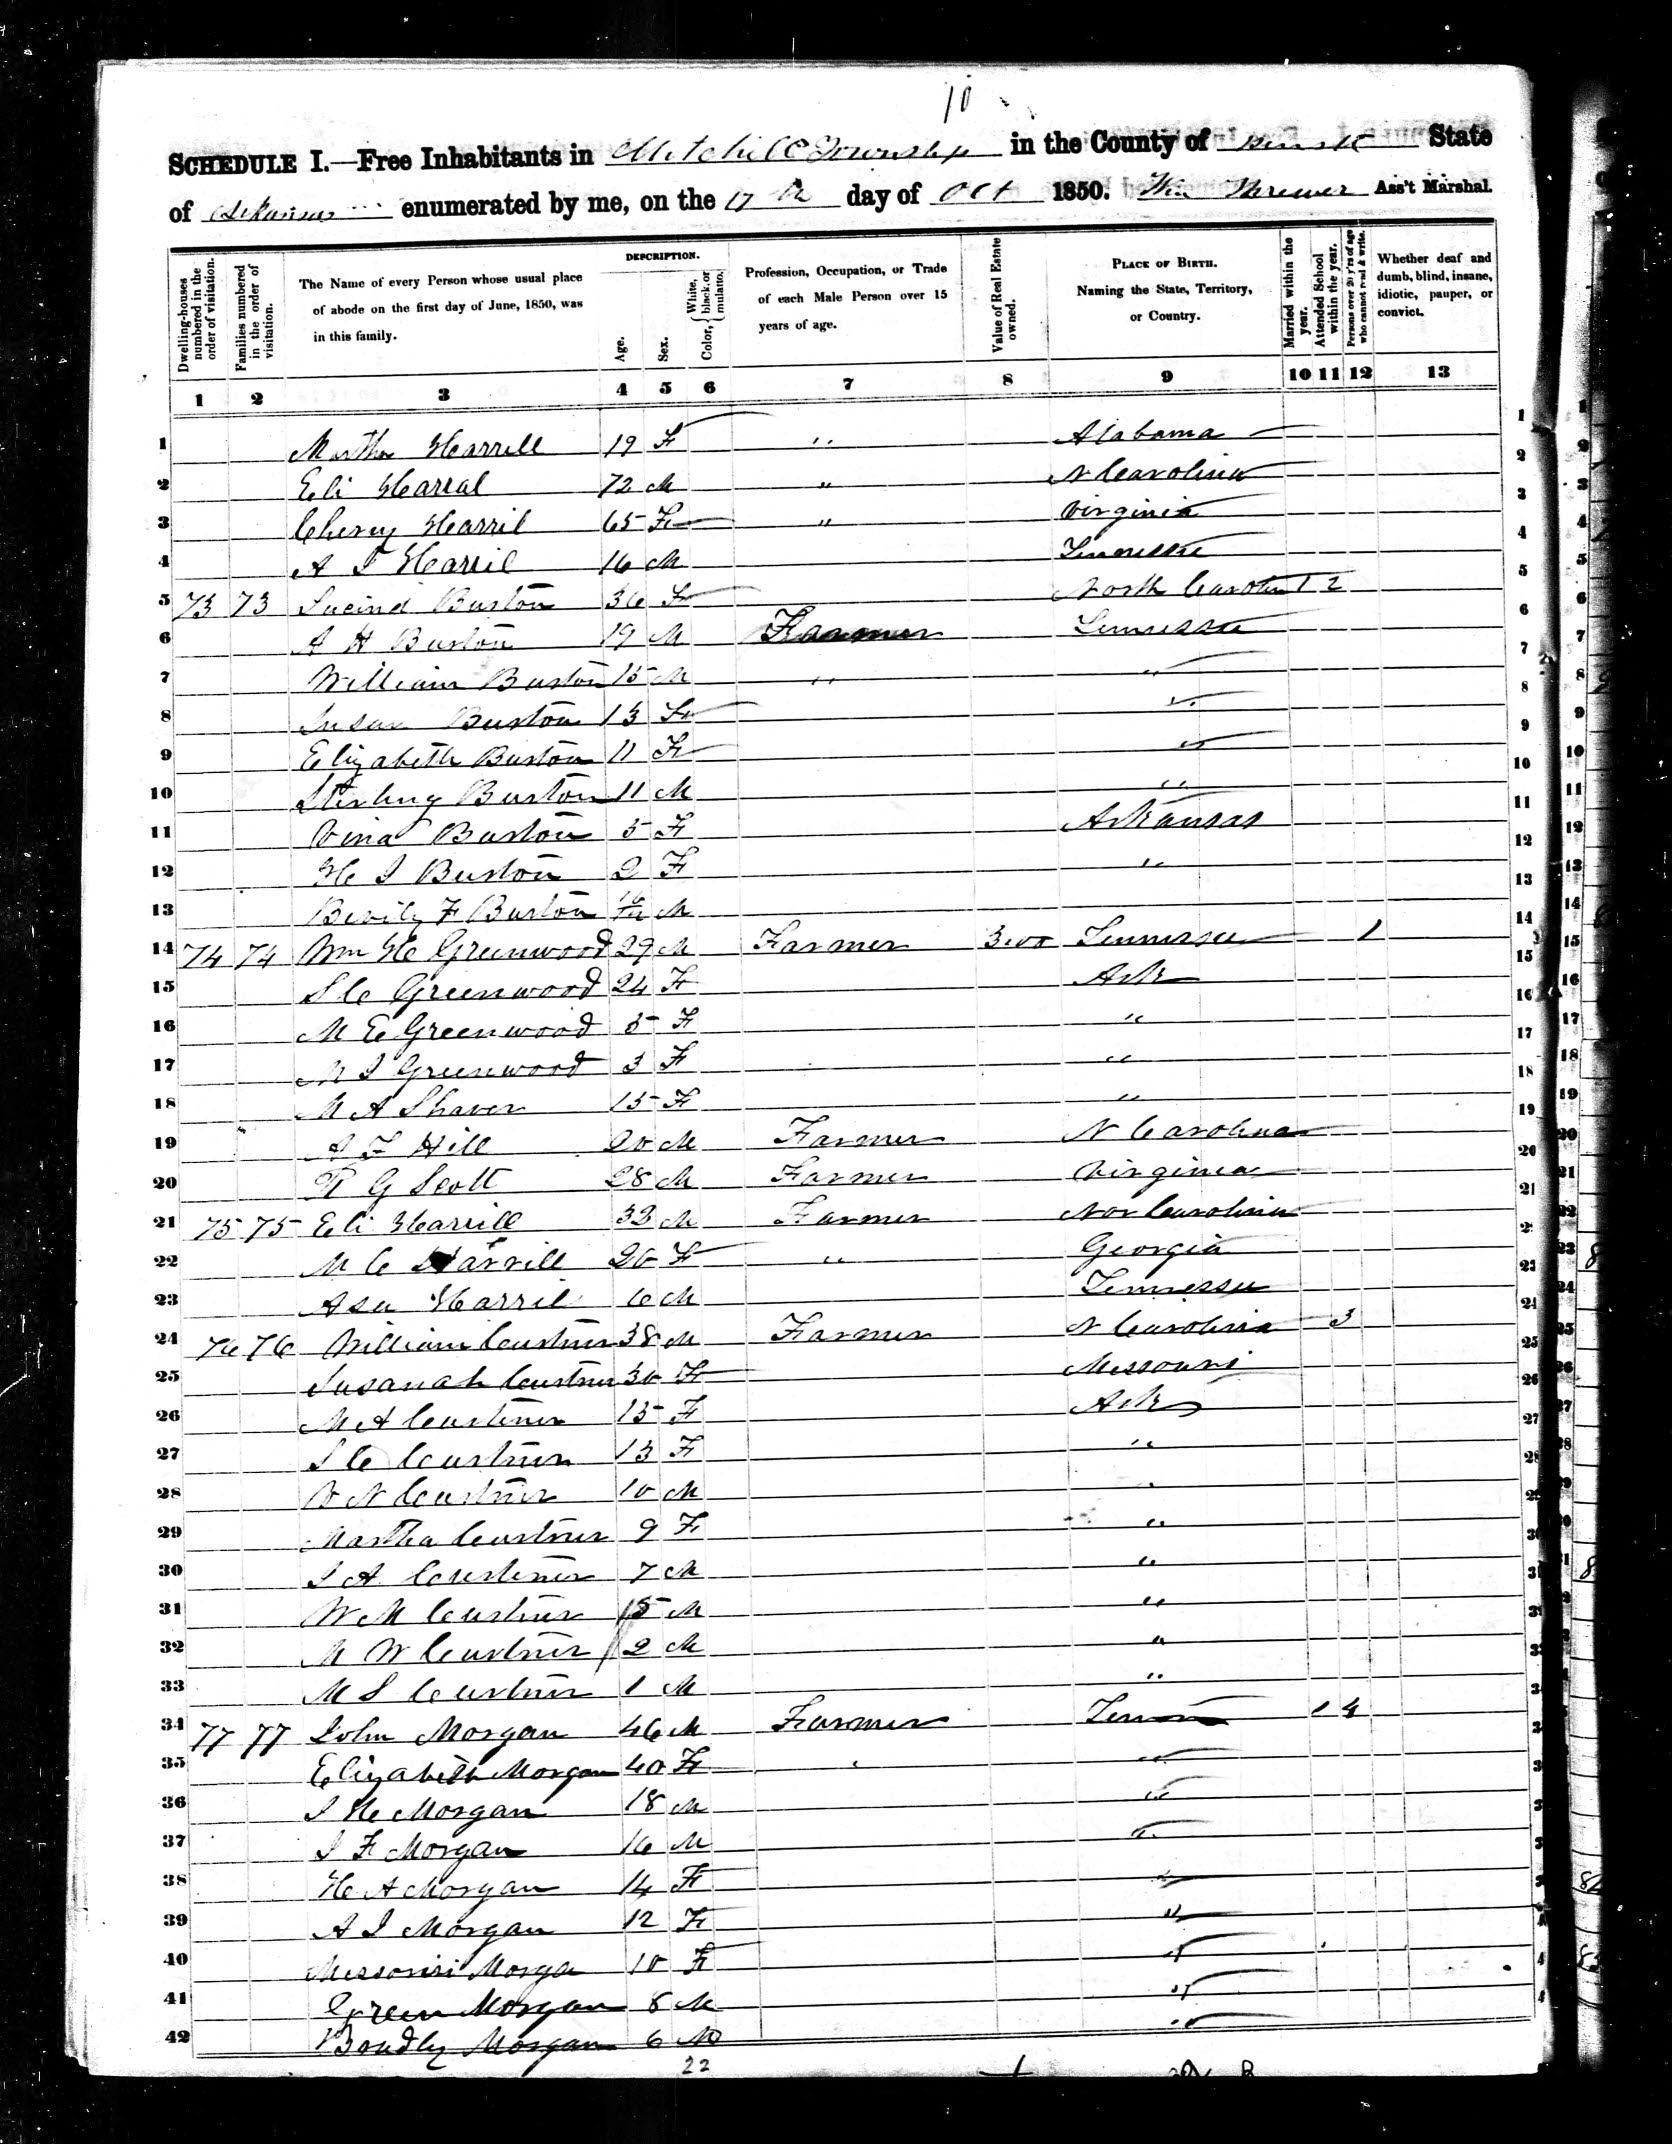 10
SCHEDULE I.—Free Inhabitants in Mitchill Township in the County of State
of Arkansas enumerated by me, on the 17th day of Oct 1850. Wm Ass't Marshal.
Dwelling-houses numbered in the order of visitation.
Families numbered in the order of visitation.
The Name of every Person whose usual place of abode on the first day of June, 1850, was in this family.
DESCRIPTION.
Age.
Sex.
Color, { White, black, or mulatto.
Profession, Occupation, or Trade of each Male Person over 15 years of age.
Value of Real Estate owned.
PLACE OF BIRTH. Naming the State, Territory, or Country.
Married within the year.
Attended School within the year.
Persons over 20 y'rs of age who cannot read & write.
Whether deaf and dumb, blind, insane, idiotic, pauper, or convict.
1 2 3 4 5 6 7 8 9 10 11 12 13
1 Martha Harrell 19 F " Alabama 1
2 Eli Harral 72 M " N Carolina 2
3 Cheroy Harril 65 F " Virginia 3
4 A J Harril 16 M Tennessee 4
5 73 73 Lucind Burton 36 F North Carolin 1 2 5
6 A H Burton 19 M Farmer Tennessee 6
7 William Burton 15 M " " 7
8 Susan Burton 13 F " 8
9 Elizabeth Burton 11 F " 9
10 Sterling Burton 11 M " 10
11 Vina Burton 5 F Arkansas 11
12 H J Burton 2 F " 12
13 Bevily F Burton M 13
14 74 74 Wm H Greenwood 29 M Farmer 300 Tennessee 1 14
15 S C Greenwood 24 F Ark 15
16 M E Greenwood 5 F " 16
17 M J Greenwood 3 F " 17
18 M A Shaver 15 F " 18
19 A F Hill 20 M Farmer N Carolina 19
20 R G Scott 28 M Farmer Virginia 20
21 75 75 Eli Harrill 33 M Farmer Nor Carolina 21
22 M C Harrill 20 F " Georgia
23 Asa Harril 6 M Tennessee 23
24 76 76 William Custner 38 M Farmer N Carolina 3 24
25 Susanah Custner 30 F Missouri 25
26 M A Custner 15 F Ark 26
27 S C Custner 13 F " 27
28 V N Custner 10 M "
29 Martha Custner 9 F "
30 J A Custner 7 M "
31 W M Custner 5 M "
32 M W Custner 2 M "
33 M S Custner 1 M "
34 77 77 John Morgan 46 M Farmer Tenn 1 4
35 Elizabeth Morgan 40 F " "
36 J H Morgan 18 M "
37 J F Morgan 16 M "
38 H A Morgan 14 F "
39 A J Morgan 12 F "
40 Missouri Morga 10 F "
41 Green Morgan 8 M "
42 Bradly Morgan 6 M "
22